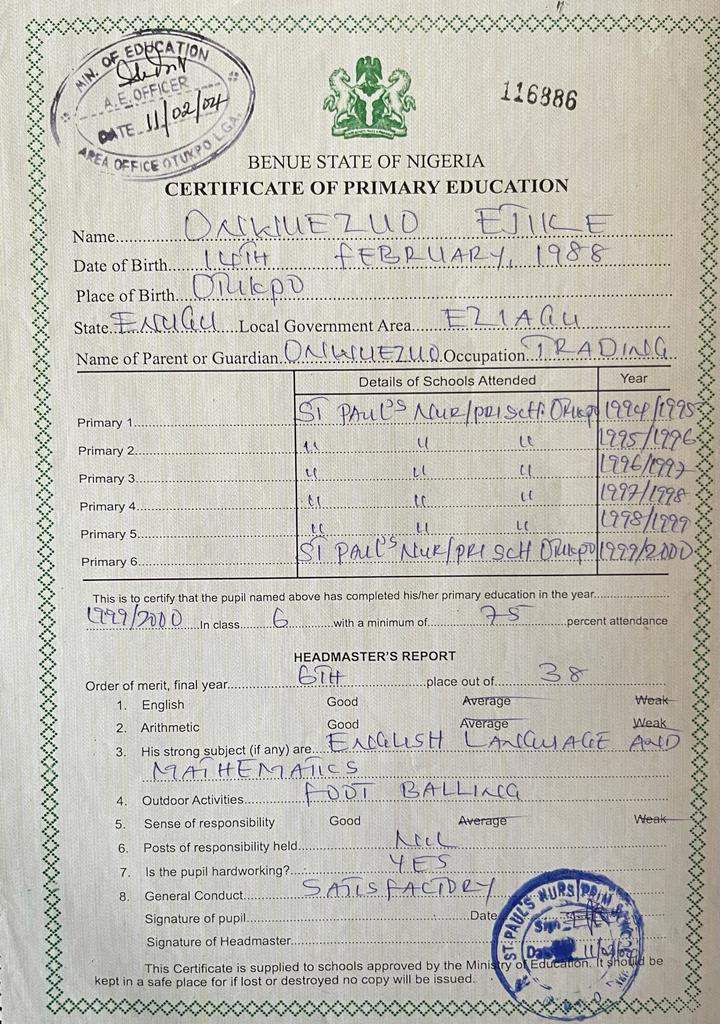 MIN. OF EDUCATION
A.E. OFFICER
DATE 11/02/04
AREA OFFICE OTUKPO L.G.A.
116886
BENUE STATE OF NIGERIA
CERTIFICATE OF PRIMARY EDUCATION
Name ONWUEZUO EJIKE
Date of Birth 14TH FEBRUARY, 1988
Place of Birth OTUKPO
State ENUGU Local Government Area EZIAGU
Name of Parent or Guardian ONWUEZUO Occupation TRADING
Details of Schools Attended Year
Primary 1 ST PAUL'S NUR/PRI SCH OTUKPO 1994/1995
Primary 2 " " " 1995/1996
Primary 3 " " " 1996/1997
Primary 4 " " " 1997/1998
Primary 5 " " " 1998/1999
Primary 6 ST PAUL'S NUR/PRI SCH OTUKPO 1999/2000
This is to certify that the pupil named above has completed his/her primary education in the year
1999/2000 In class 6 with a minimum of 75 percent attendance
HEADMASTER'S REPORT
Order of merit, final year 6TH place out of 38
1. English Good Average Weak
2. Arithmetic Good Average Weak
3. His strong subject (if any) are ENGLISH LANGUAGE AND
MATHEMATICS
4. Outdoor Activities FOOT BALLING
5. Sense of responsibility Good Average Weak
6. Posts of responsibility held NIL
7. Is the pupil hardworking? YES
8. General Conduct SATISFACTORY
Signature of pupil Date
Signature of Headmaster
This Certificate is supplied to schools approved by the Ministry of Education. It should be
kept in a safe place for if lost or destroyed no copy will be issued.
ST. PAUL'S NURS/PRIM
Sign
Date